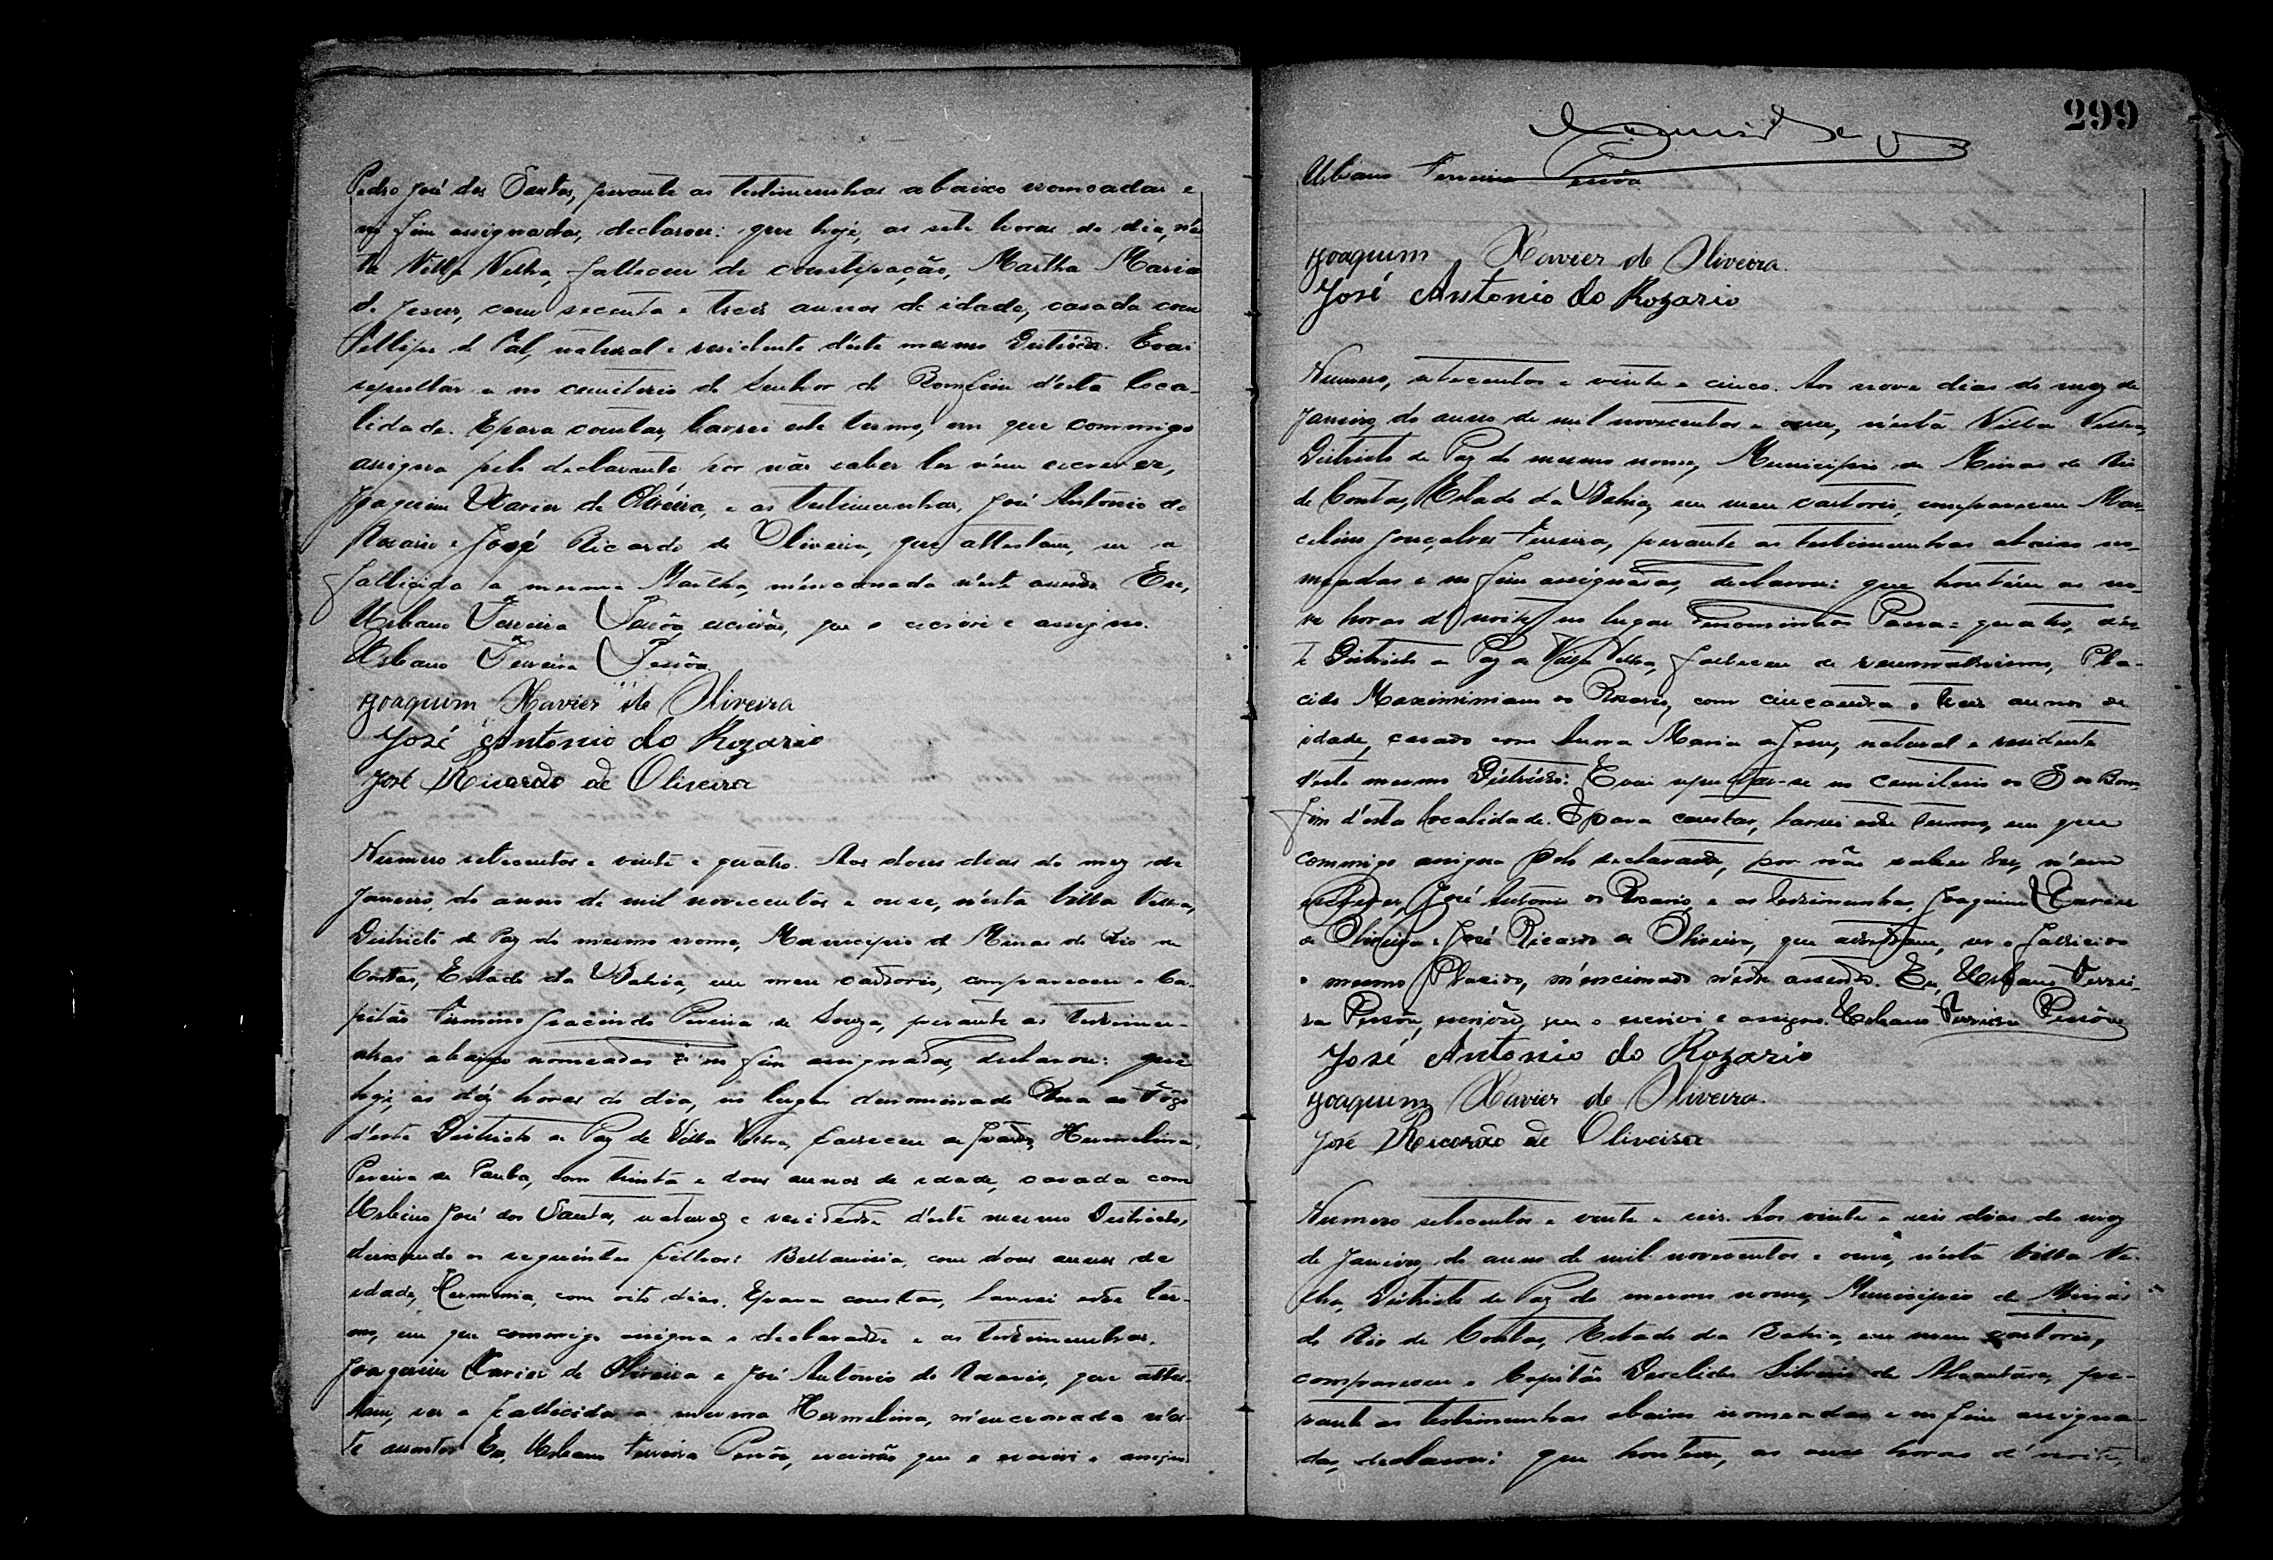 Pedro José dos Santos, perante as testimunhas abaixo nomeadas e
no fim assignadas, declarou: que hoje, as sete horas do dia, n'es
ta Villa Velha, falleceu de constipação, Martha Maria
de Jesus, com secenta e treis annos de idade, casada com
Fellipe de Tal, natural e residente d'este mesmo Districto. E vai
sepultar-se no cemiterio do Senhor do Bomfim d'esta loca-
lidade. E para constar, lavrei este termo, em que commigo
assigna pelo declarante por não saber ler n'em escrever,
Joaquim Xavier de Oliveira, e as testimunhas, José Antonio do
Rosario e José Ricardo de Oliveira, que attestam, ser a
fallicida a mesma Martha, mencionada n'este assento. Eu,
Urbano Ferreira Pessôa, escrivão, que o escrivi e assigno.
Urbano Ferreira Pessôa
Joaquim Xavier de Oliveira
José Antonio do Rozario
José Ricardo de Oliveira
Numero setecentos e vinte e quatro. Aos dous dias do mez de
Janeiro, do anno de mil novecentos e onze, n'esta Villa Velha,
Districto de Paz do mesmo nome, Municipio de Minas do Rio de
Contas, Estado da Bahia, em meu cartorio, compareceu o Ca-
pitão Firmino Gracindo Pereira de Souza, perante as testimu-
nhas abaixo nomeadas e no fim assignadas, declarou: que
hoje, as déz horas do dia, no lugar denominado
d'este Districto de Paz de Villa Velha, falleceu de parto, Hermelina
Pereira de Paula, com trinta e dous annos de idade, casada com
Urbino José dos Santos, natural e residente d'este mesmo Districto,
deixando os seguintes filhos: com dous annos de
idade, Herminia, com oito dias. E para constar, lavrei este ter-
mo, em que commigo assigna o declarante e as testimunhas.
Joaquim Xavier de Oliveira e José Antonio do Rosario, que attes-
tam, ser a fallicida a mesma Hermelina, mencionada n'es-
te assento. Eu, Urbano Ferreira Pessôa, escrivão que o escrivi e assigno
299
Urbano Ferreira Pessôa
Joaquim Xavier de Oliveira.
José Antonio do Rozario
Numero, setecentos e vinte e cinco. Aos nove dias do mez de
Janeiro, do anno de mil novecentos e onze, n'esta Villa Velha,
Districto de Paz do mesmo nome, Municipio de Minas do Rio
de Contas, Estado da Bahia, em meu cartorio, compareceu Mar-
celino Gonçalves Ferreira, perante as testimunhas abaixo no-
meadas e no fim assignadas, declarou: que hontem as no-
ve horas d'noite, no lugar denominado Passa-quatro, d'es-
te Districto de Paz de Villa Velha, falleceu de reumatismo, Pla-
cido Maximiniano do Rosario, com cincoenta e treis annos de
idade, casado com Maria de Jesus, natural e residente
d'este mesmo Districto: E vai sepultar-se no cemiterio do S. do Bom-
fim d'esta localidade. E para constar, lavrei este termo, em que
commigo assigna pelo declarante, por não saber ler, n'em
escrever, José Antonio do Rosario, e as testimunhas, Joaquim Xavier
de Oliveira e José Ricardo de Oliveira, que attestam, ser o fallicido
o mesmo Placido, mencionado n'este assento. Eu, Urbano Ferrei-
ra Pessôa, escrivão, que o escrivi e assigno. Urbano Ferreira Pessôa
José Antonio do Rozario
Joaquim Xavier de Oliveira.
José Ricardo de Oliveira
Numero setecentos e vinte e seis. Aos vinte e seis dias do mez
de Janeiro, do anno de mil novecentos e onze, n'esta Villa Ve-
lha, Districto de Paz do mesmo nome, Municipio de Minas
do Rio de Contas, Estado da Bahia, em meu cartorio,
compareceu o Capitão Silverio de Alcantara, pe-
rante as testimunhas abaixo nomeadas e no fim assigna-
das, declarou: que hontem, as onze horas d'noite,